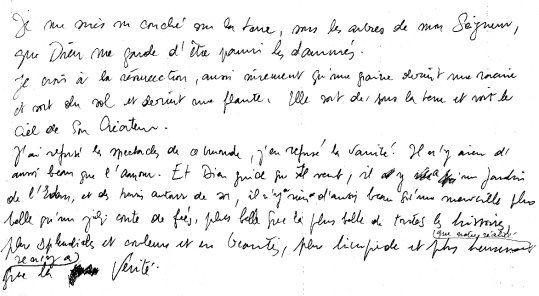 Je me suis couché sur la terre, sous les arbres de mon Seigneur,
que Dieu me garde d'être parmi les damnés.
Je crois à la résurrection, aussi sûrement qu'une graine devient une racine
et sort du sol et devient une plante. Elle sort de sous la terre et voit le
ciel de Son Créateur.
J'ai refusé les spectacles de ce monde, j'en refusé la vanité. Il n'y a rien d'
aussi beau que l'amour. Et Dieu guide qui Il veut, il y qu'un Jardin
de l'Eden, et des autour de soi, il n'y rien d'aussi beau qu'une merveille plus
belle qu'un joli conte de fées, plus belle que la plus belle de toutes les histoires
(que notre
plus splendides et couleurs et en beautés, plus limpide et plus heureuse
que la Vérité.